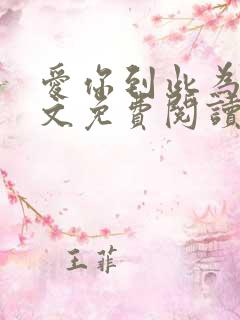 愛你到此為
文免費閱讀
王菲